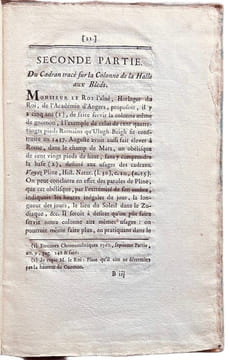 [11]
SECONDE PARTIE.
Du Cadran tracé sur la Colonne de la Halle
aux Bleds.
MONSIEUR LE ROI l'aîné, Horloger du
Roi, de l'Académie d'Angers, proposoit, il y
a cinq ans (1), de faire servir la colonne même
de gnomon, à l'exemple de celui de cent quatre-
vingts pieds Romains qu'Ulugh Beigh se
construite en 1437. Auguste avoit aussi fait élever
à Rome, dans le champ de Mars, un obélisque
de cent vingt pieds de haut, sans y comprendre
la base (2), destiné aux usages des cadrans.
Voyez Pline, Hist. Natur.
On peut conclure en effet des paroles de Pline
que cet obélisque, par l'extrémité de son ombre,
indiquoit les heures inégales du jour, la
longueur des jours, le lieu du Soleil dans le Zo-
diaque, &c. Il seroit à desirer qu'on pût faire
servir notre colonne aux mêmes usages : on
pourroit même faire plus, en pratiquant dans le
(1) Etrennes Chronométriques 1760, septieme Partie,
(2) Je
la hauteur du Gnomon.
B iij